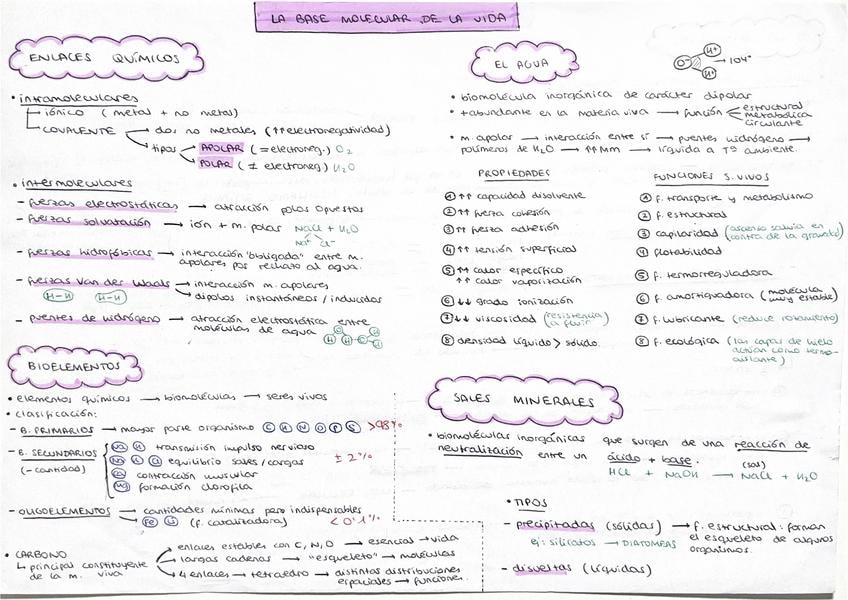 LA BASE MOLECULAR DE LA VIDA
ENLACES QUÍMICOS
• intramoleculares
iónico (metal + no metal)
COVALENTE → dos no metales (↑↑electronegatividad)
tipos → APOLAR (= electroneg.) O₂
POLAR (≠ electroneg.) H₂O
• intermoleculares
- fuerzas electrostáticas → atracción polos opuestos
- fuerzas solvatación → ión + m. polas NaCl + H₂O
Na⁺ Cl⁻
- fuerzas hidrofóbicas → interacción "obligada" entre m.
apolares por rechazo al agua.
- fuerzas Van der Waals → interacción m. apolares
H-H H-H → dipolos instantáneos / inducidos
- puentes de hidrógeno → atracción electrostática entre
moléculas de agua
BIOELEMENTOS
• elementos químicos → biomoléculas → seres vivos
• clasificación:
- B. PRIMARIOS → mayor parte organismo C H N O P S >98%
- B. SECUNDARIOS
(- cantidad)
transmisión impulso nervioso
equilibrio sales/cargas ± 2%
contracción muscular
Mg formación clorofila
- OLIGOELEMENTOS → cantidades mínimas pero indispensables
(f. catalizadora) < 0'1%
• CARBONO
↳ principal constituyente
de la m. viva
→ enlaces estables con C, N, O → esencial → vida
→ largas cadenas → "esqueleto" → moléculas
→ 4 enlaces → tetraedro → distintas distribuciones
espaciales → funciones.
EL AGUA
O⁻ H⁺ H⁺ → 104°
• biomolécula inorgánica de carácter dipolar
• + abundante en la materia viva → función estructural
metabólica
circulante
• m. apolar → interacción entre sí → puentes hidrógeno →
polímeros de H₂O → ↑↑Mm → líquida a Tº ambiente.
PROPIEDADES
① ↑↑ capacidad disolvente
② ↑↑ fuerza cohesión
③ ↑↑ fuerza adhesión
④ ↑↑ tensión superficial
⑤ ↑↑ calor específico
↑↑ calor vaporización
⑥ ↓↓ grado ionización
⑦ ↓↓ viscosidad (resistencia
a fluir)
⑧ densidad líquido > sólido.
FUNCIONES S. VIVOS
① f. transporte y metabolismo
② f. estructural
③ capilaridad (ascenso salvia en
contra de la gravedad)
④ flotabilidad
⑤ f. termorreguladora
⑥ f. amortiguadora (molécula
muy estable)
⑦ f. lubricante (reduce rozamiento)
⑧ f. ecológica (las capas de hielo
actúan como termo-
aislante)
SALES MINERALES
• biomoléculas inorgánicas que surgen de una reacción de
neutralización entre un ácido + base. (sal)
HCl + NaOH → NaCl + H₂O
• TIPOS
- precipitadas (sólidas) → f. estructural: forman
ej: silicatos → DIATOMEAS el esqueleto de algunos
organismos.
- disueltas (líquidas)